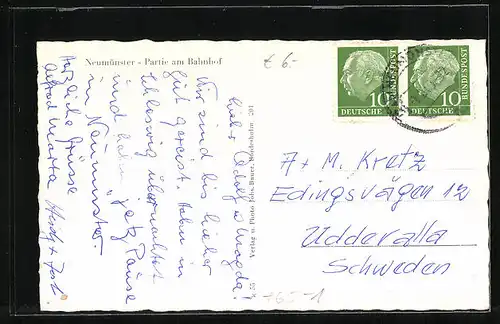 Neumünster - Partie am Bahnhof
€ 6.-
Lieber Adolf u Magda!
Wir sind bis hieher
gut gereist. Haben in
Schleswig übernachtet
und haben jetzt Pause
in Neumünster.
Herzliche Grüsse
Alfred Marta
Verlag u. Photo Joh.
201
DEUTSCHE
BUNDESPOST
10
DEUTSCHE
BUNDESPOST
10
A + M. Kretz
Edingsvägen 12
Uddevalla
Schweden